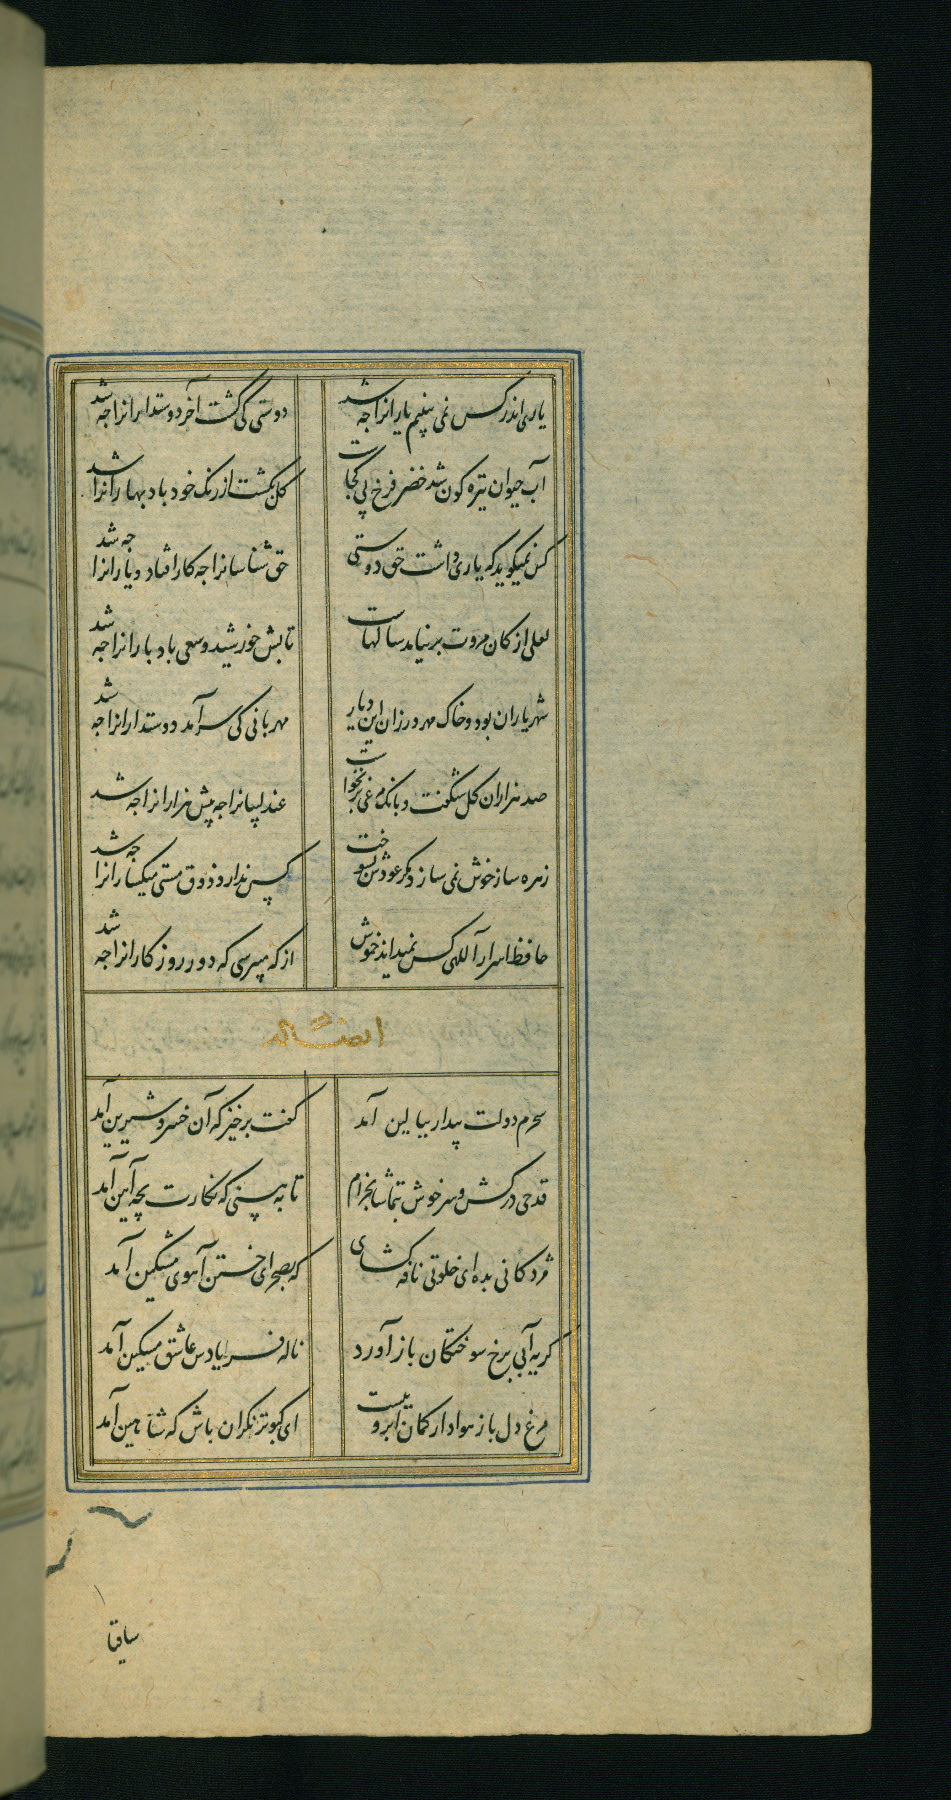 یاری اندر کس نمی بینیم یارانرا چه شد دوستی کی گشت آخر دوستدارانرا چه شد
آب حیوان تیره کون شد خضر فرخ پی کجاست کل بکشت از رنک خود باد بهارانرا چه شد
کس نمیکوید که یاری داشت حق دوستی حق شناسانرا چه کار افتاد و یارانرا چه شد
لعلی از کان مروت برنیامد سالهاست تابش خورشید و سعی باد بارانرا چه شد
شهریاران بود و خاک مهرورزان این دیار مهربانی کی سرآمد دوستدارانرا چه شد
صد هزاران کل شکفت و بانک مرغی برنخواست عندلیبانرا چه پیش هزارانرا چه شد
زهره ساز خوش نمی سازد مکر عودش بسوخت کس ندارد ذوق مستی میکسارانرا چه شد
حافظ اسرار آللهی کس نمیداند خموش از که میپرسی که دور روزکارانرا چه شد
ایضاله
سحرم دولت بیدار ببالین آمد کفت برخیز که آن خسرو شیرین آمد
قدحی درکش و سرخوش بتماشا بخرام تا به بینی که نکارت بچه آیین آمد
مژدکانی بده ای خلوتی نافه کشای که بصحرای ختن آهوی مشکین آمد
کریه آبی برخ سوختکان باز آورد ناله فریادرس عاشق مسکین آمد
مرغ دل باز هوادار کمان ابروییست ای کبوتر نکران باش که شاهین آمد
ساقیا